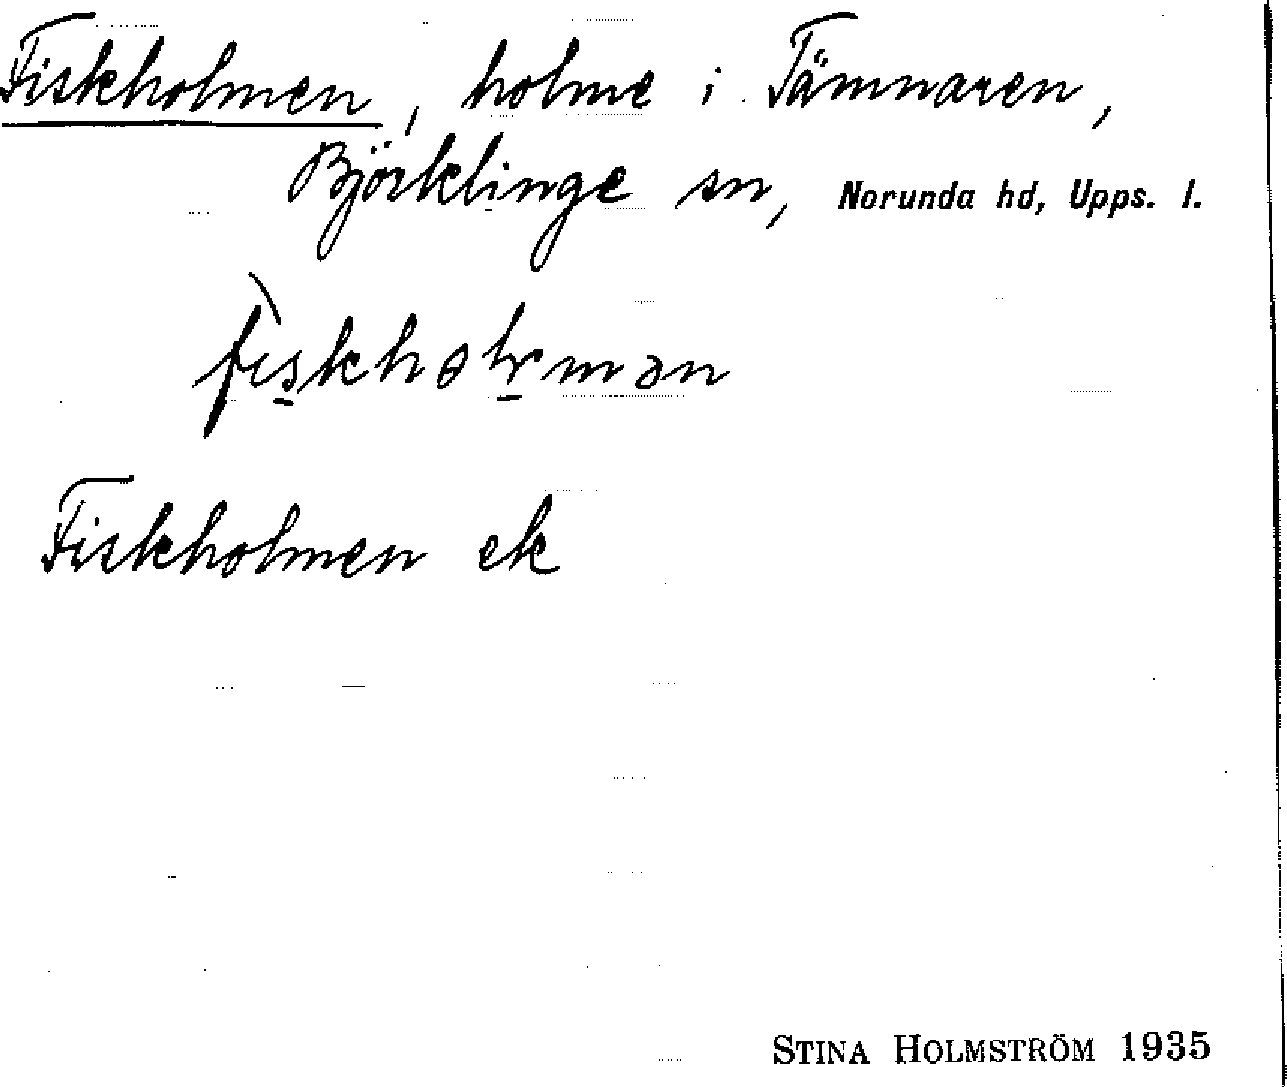 Fiskholmen, holme i Tämnaren,
Björklinge sn, Norunda hd, Upps. l.
Fiskholmen ek
STINA HOLMSTRÖM 1935